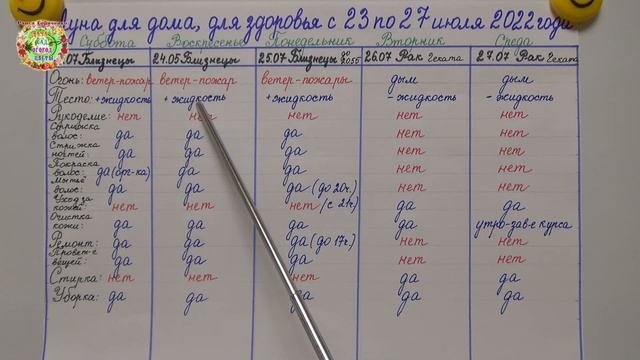 Луна для дома, для здоровья с 23 по 27 июля 2022 годи
Суббота Воскресенье Понедельник Вторник Среда
.07 Близнецы 24.05 Близнецы 25.07 Близнецы до 2055 26.07 Рак Геката 27.07 Рак Геката
Огонь: ветер-пожар ветер-пожар ветер-пожары дым дым
Тесто: +жидкость + жидкость +жидкость - жидкость - жидкость
Рукоделие: нет нет нет нет нет
Стрижка волос: да да да нет нет
Стрижка ногтей: да да да нет нет
Покраска волос: да (орг-ка) да да нет нет
Мытьё волос: да да да (до 20ч.) нет нет
Уход за кожей: нет нет нет /с 21ч.) да да
Очистка кожи: да да да да утро-зав-е курса
Ремонт: да да да (до 17ч.) нет нет
Провет-е вещей: да да да нет нет
Стирка: нет нет нет да да
Уборка: да да да да да
огород
цветы